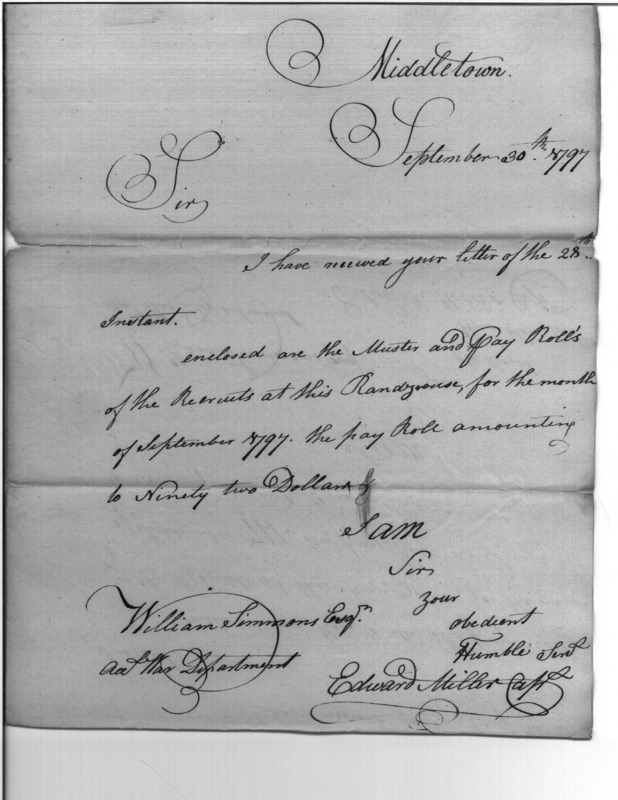 Middletown.
September 30th. 1797
Sir
I have received your letter of the 28th.
Instant.
enclosed are the Muster and Pay Roll's
of the Recruits at this Randzvouse, for the month
of September 1797. the pay Roll amounting
to Ninety two Dollars
I am
Sir
your
obedient
Humble Servt
William Simmons Esqr.
Acct War Department
Edward Miller Capt